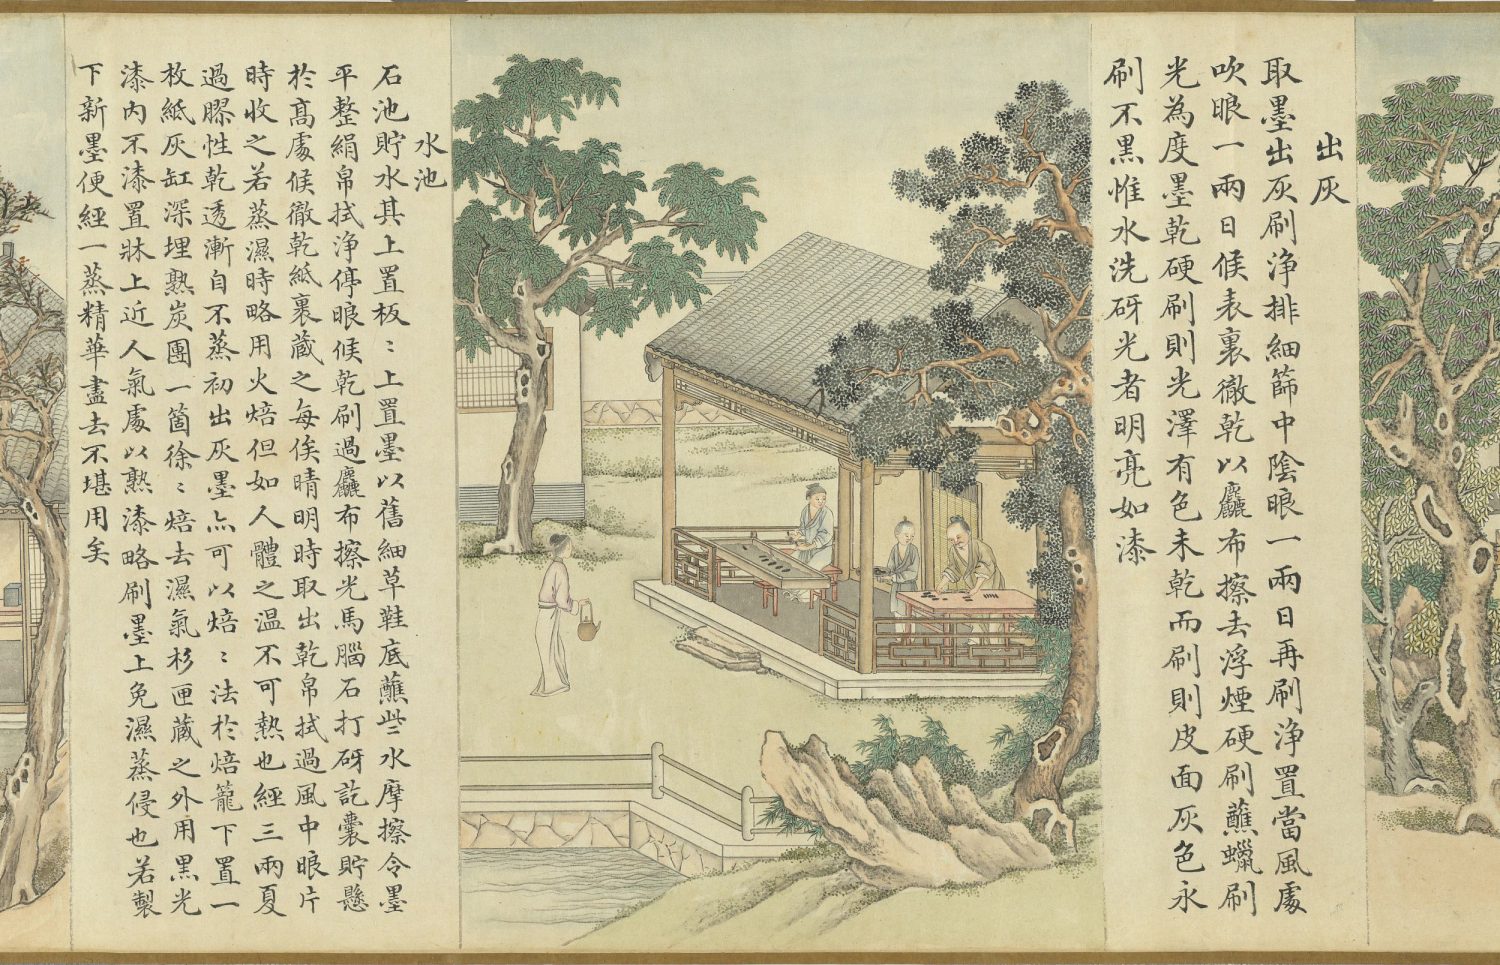 出灰
取墨出灰刷淨排細篩中陰晾一兩日再刷淨置當風處
吹晾一兩日候表裏徹乾以麤布擦去浮煙硬刷蘸蠟刷
光為度墨乾硬刷則光澤有色未乾而刷則皮面灰色永
刷不黑惟水洗砑光者明亮如漆
水池
石池貯水其上置板〻上置墨以舊細草鞋底蘸些水摩擦令墨
平整絹帛拭淨停晾候乾刷過麤布擦光馬腦石打砑訖囊貯懸
於高處候徹乾紙裹藏之每俟晴明時取出乾帛拭過風中晾片
時收之若蒸濕時略用火焙但如人體之溫不可熱也經三兩夏
過膠性乾透漸自不蒸初出灰墨亦可以焙〻法於焙籠下置一
枚紙灰缸深埋熟炭團一箇徐〻焙去濕氣杉匣藏之外用黑光
漆內不漆置牀上近人氣處以熟漆略刷墨上免濕蒸侵也若製
下新墨便經一蒸精華盡去不堪用矣